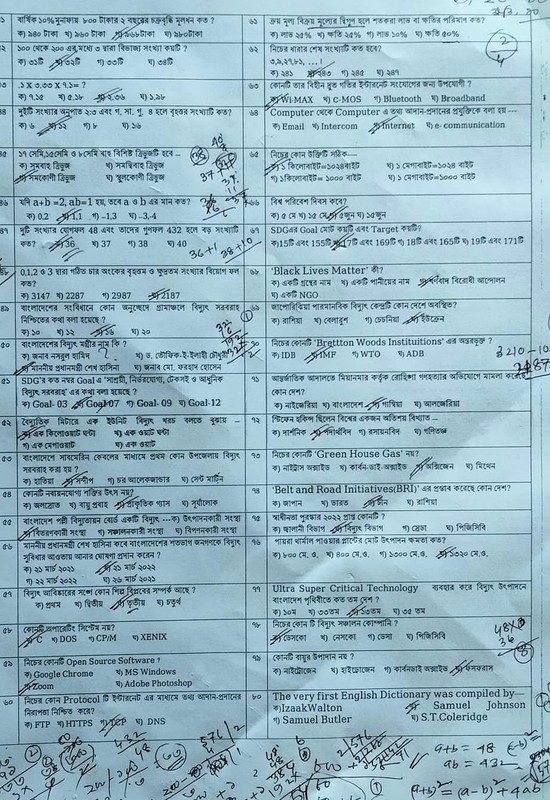 ১ বার্ষিক 10% মুনাফায় ৮০০ টাকার ২ বছরের চক্রবৃদ্ধি মূলধন কত ?
ক) ৯৪০ টাকা খ) ৯৬০ টাকা গ) ৯৬৮ টাকা ঘ) ৯৮০ টাকা
১০০ থেকে ২০০ এর মধ্যে ৩ দ্বারা বিভাজ্য সংখ্যা কয়টি ?
ক) ৩১টি খ) ৩২টি গ) ৩৩টি ঘ) ৩৪টি
.১ X ৩.৩৩ X ৭.১= ?
ক) ৭.১৫ খ) ৫.১৮ গ) ২.৩৬ ঘ) ১.৯৮
দুইটি সংখ্যার অনুপাত ২:৩ এবং গ. সা. গু. ৪ হলে বৃহত্তর সংখ্যাটি কত?
ক) ৬ খ) ১২ গ) ৮ ঘ) ১৬
৪৫ ১৭ সেমি,১৫সেমি ও ৮সেমি বাহু বিশিষ্ট ত্রিভুজটি হবে –
ক) সমবাহু ত্রিভুজ খ) সমদ্বিবাহু ত্রিভুজ
গ) সমকোণী ত্রিভুজ ঘ) স্থূলকোণী ত্রিভুজ
৪৬ যদি a+b =2, ab=1 হয়, তবে a ও b এর মান কত?
ক) 0,2 খ) 1,1 গ) -1,3 ঘ) -3,-4
৪৭ দুটি সংখ্যার যোগফল 48 এবং তাদের গুণফল 432 হলে বড় সংখ্যাটি
কত? ক) 36 খ) 37 গ) 38 ঘ) 40
0,1,2 ও 3 দ্বারা গঠিত চার অংকের বৃহত্তম ও ক্ষুদ্রতম সংখ্যার বিয়োগ ফল
কত?
ক) 3147 খ) 2287 গ) 2987 ঘ) 2187
৪৯ বাংলাদেশের সংবিধানে কোন অনুচ্ছেদে গ্রামাঞ্চলে বিদ্যুৎ সরবরাহ
নিশ্চিতের কথা বলা হয়েছে ?
ক) ১০ খ) ১২ গ) ১৬ ঘ) ২০
৫০ বাংলাদেশের বিদ্যুৎ মন্ত্রীর নাম কি ?
ক) জনাব নসরুল হামিদ খ) ড. তৌফিক-ই-ইলাহী চৌধুরী
গ) মাননীয় প্রধানমন্ত্রী শেখ হাসিনা ঘ) জনাব মো. ফরহাদ হোসেন
৫১ SDG'র কত নম্বর Goal এ 'সাশ্রয়ী, নির্ভরযোগ্য, টেকসই ও আধুনিক
বিদ্যুৎ সরবরাহ' এর কথা বলা হয়েছে ?
ক) Goal- 03 খ) Goal-07 গ) Goal-09 ঘ) Goal-12
৫২ বৈদ্যুতিক মিটারে এক ইউনিট বিদ্যুৎ খরচ বলতে বুঝায় –
ক) এক কিলোওয়াট ঘন্টা খ) এক ওয়াট ঘন্টা
গ) এক মেগাওয়াট ঘ) এক ওয়াট
৫৩ বাংলাদেশে সাবমেরিন কেবলের মাধ্যমে প্রথম কোন উপজেলায় বিদ্যুৎ
সরবরাহ করা হয় ?
ক) হাতিয়া খ) সন্দ্বীপ গ) চর আলেকজান্ডার ঘ) সেন্ট মার্টিন
৫৪ কোনটি নবায়নযোগ্য শক্তির উৎস নয়?
ক) জলস্রোত খ) বায়ু প্রবাহ গ) প্রাকৃতিক গ্যাস ঘ) সূর্যালোক
৫৫ বাংলাদেশ পল্লী বিদ্যুতায়ন বোর্ড একটি বিদ্যুৎ ---ক) উৎপাদনকারী সংস্থা
খ) বিতরণকারী সংস্থা গ) সঞ্চালনকারী সংস্থা ঘ) বিপণনকারী সংস্থা
৫৬ মাননীয় প্রধানমন্ত্রী শেখ হাসিনা কবে বাংলাদেশের শতভাগ জনগণকে বিদ্যুৎ
সুবিধার আওতায় আনার ঘোষণা প্রদান করেন ?
ক) ২১ মার্চ ২০২১ খ) ২১ মার্চ ২০২২
গ) ২২ মার্চ ২০২২ ঘ) ২৬ মার্চ ২০২১
৫৭ বিদ্যুৎ আবিষ্কারের সঙ্গে কোন শিল্প বিপ্লবের সম্পর্ক আছে ?
ক) প্রথম খ) দ্বিতীয় গ) তৃতীয় ঘ) চতুর্থ
৫৮ কোনটি অপারেটিং সিস্টেম নয়?
ক) C খ) DOS গ) CP/M ঘ) XENIX
৫৯ নিচের কোনটি Open Source Software ?
ক) Google Chrome খ) MS Windows
গ) Zoom ঘ) Adobe Photoshop
৬০ নিচের কোন Protocol টি ইন্টারনেট এর মাধ্যমে তথ্য আদান-প্রদানের
নিরাপত্তা নিশ্চিত করে?
ক) FTP খ) HTTPS গ) TCP ঘ) DNS
৬১ ক্রয় মূল্য বিক্রয় মূল্যের দ্বিগুণ হলে শতকরা লাভ বা ক্ষতির পরিমাণ কত?
ক) লাভ ২৫% খ) ক্ষতি ২৫% গ) লাভ ১০% ঘ) ক্ষতি ৫০%
৬২ নিচের ধারার শেষ সংখ্যাটি কত হবে?
৩,৯,২৭,৮১, ... !
ক) ২৪১ খ) ২৪৩ গ) ২৪৫ ঘ) ২৪৭
৬৩ কোনটি তার বিহীন দ্রুত গতির ইন্টারনেট সংযোগের জন্য উপযোগী ?
ক) Wi-MAX খ) C-MOS গ) Bluetooth ঘ) Broadband
64 Computer থেকে Computer এ তথ্য আদান-প্রদানের প্রযুক্তিকে বলা হয় ---
ক) Email খ) Intercom গ) Internet ঘ) e- communication
৬৫ নিচের কোন উক্তিটি সঠিক---
ক) ১ কিলোবাইট=১০২৪ বাইট খ) ১ মেগাবাইট=১০২৪ বাইট
গ) ১কিলোবাইট= ১০০০ বাইট ঘ) ১ মেগাবাইট=১০০০ বাইট
৬৬ বিশ্ব পরিবেশ দিবস কবে?
ক) ৫ মে খ) ১৫ মে গ) ৫জুন ঘ) ১৫জুন
67 SDGএর Goal মোট কয়টি এবং Target কয়টি?
ক)15টি এবং 155টি খ) 17টি এবং 169টি গ) 18টি এবং 165টি ঘ) 19টি এবং 171টি
৬৮ 'Black Lives Matter' কী?
ক) একটি গ্রন্থের নাম খ) একটি পানীয়ের নাম গ) বর্ণবাদ বিরোধী আন্দোলন
ঘ) একটি NGO
৬৯ জাপোরিঝিয়া পারমানবিক বিদ্যুৎ কেন্দ্রটি কোন দেশে অবস্থিত?
ক) রাশিয়া খ) বেলারুশ গ) চেচনিয়া ঘ) ইউক্রেন
নিচের কোনটি 'Brettton Woods Instituitions' এর অন্তর্ভুক্ত ?
ক) IDB খ) IMF গ) WTO ঘ) ADB
৭১ আন্তর্জাতিক আদালতে মিয়ানমার কর্তৃক রোহিঙ্গা গনহত্যার অভিযোগে মামলা করেছে
কোন দেশ?
ক) নাইজেরিয়া খ) বাংলাদেশ গ) গাম্বিয়া ঘ) আলজেরিয়া
৭২ স্টিফেন হকিন্স ছিলেন বিশ্বের একজন অতিশয় বিখ্যাত –
ক) দার্শনিক খ) পদার্থবিদ গ) রসায়নবিদ ঘ) গণিতজ্ঞ
৭৩ নিচের কোনটি 'Green House Gas' নয়?
ক) নাইট্রাস অক্সাইড খ) কার্বন-ডাই-অক্সাইড গ) অক্সিজেন ঘ) মিথেন
৭৪ 'Belt and Road Initiatives(BRI)' এর প্রস্তাব করেছে কোন দেশ?
ক) জাপান খ) ভারত গ) চীন ঘ) রাশিয়া
৭৫ স্বাধীনতা পুরস্কার ২০২২ প্রাপ্ত কোনটি ?
ক) জ্বালানী বিভাগ খ) বিদ্যুৎ বিভাগ গ) স্রেডা ঘ) পিজিসিবি
৭৬ পায়রা থার্মাল পাওয়ার প্লান্টের মোট উৎপাদন ক্ষমতা কত?
ক) ৮০০ মে. ও. খ) ৪০০ মে. ও. গ) ১৩০০ মে. ও. ঘ) ১৩২০ মে. ও.
৭৭ Ultra Super Critical Technology ব্যবহার করে বিদ্যুৎ উৎপাদনে
বাংলাদেশ পৃথিবীতে কত তম দেশ ?
ক) ১০ম খ) ৩৩তম গ) ১৩তম ঘ) ৩৫ তম
৭৮ নিচের কোন টি বিদ্যুৎ সঞ্চালন কোম্পানি ?
ক) ডেসকো খ) নেসকো গ) ডেসা ঘ) পিজিসিবি
৭৯ কোনটি বায়ুর উপাদান নয় ?
ক) নাইট্রোজেন খ) হাইড্রোজেন গ) কার্বনডাই অক্সাইড ঘ) ফসফরাস
৮০ The very first English Dictionary was compiled by—
ক)IzaakWalton খ) Samuel Johnson
গ) Samuel Butler ঘ) S.T.Coleridge
36+1 38+10
a+b = 48
ab = 432
(a+b)² = (a-b)² + 4ab